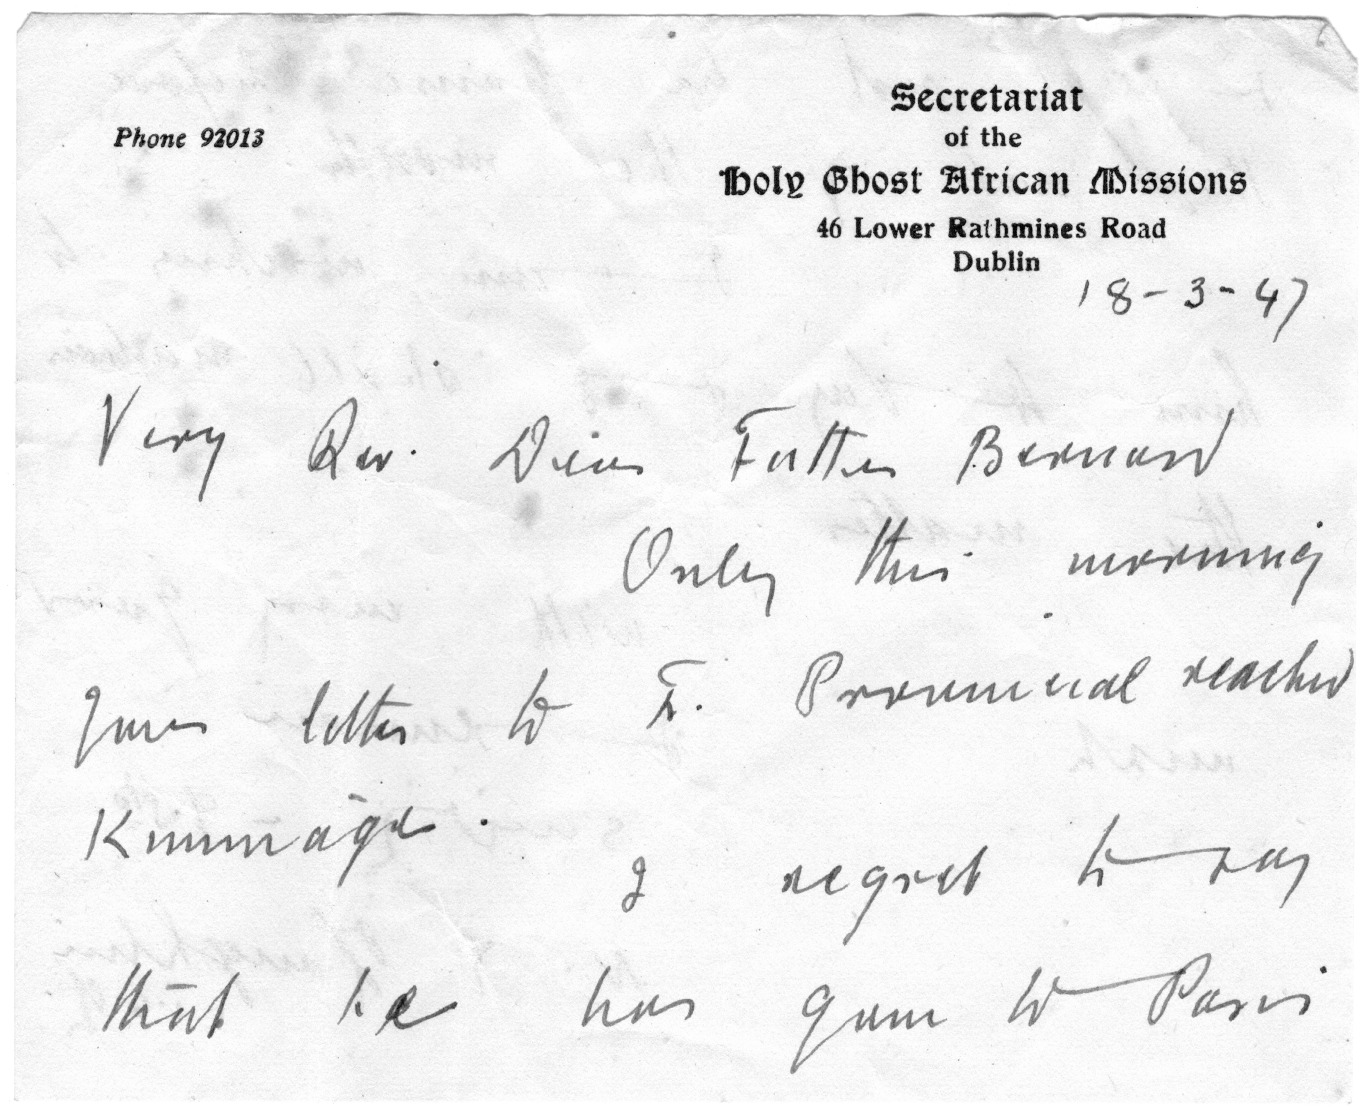 Phone 92013
Secretariat
of the
Holy Ghost African Missions
46 Lower Rathmines Road
Dublin
18-3-47
Very Rev. Dear Father Bernard
Only this morning
your letter to Fr. Provincial reached
Kimmage.
I regret to say
that he has gone to Paris